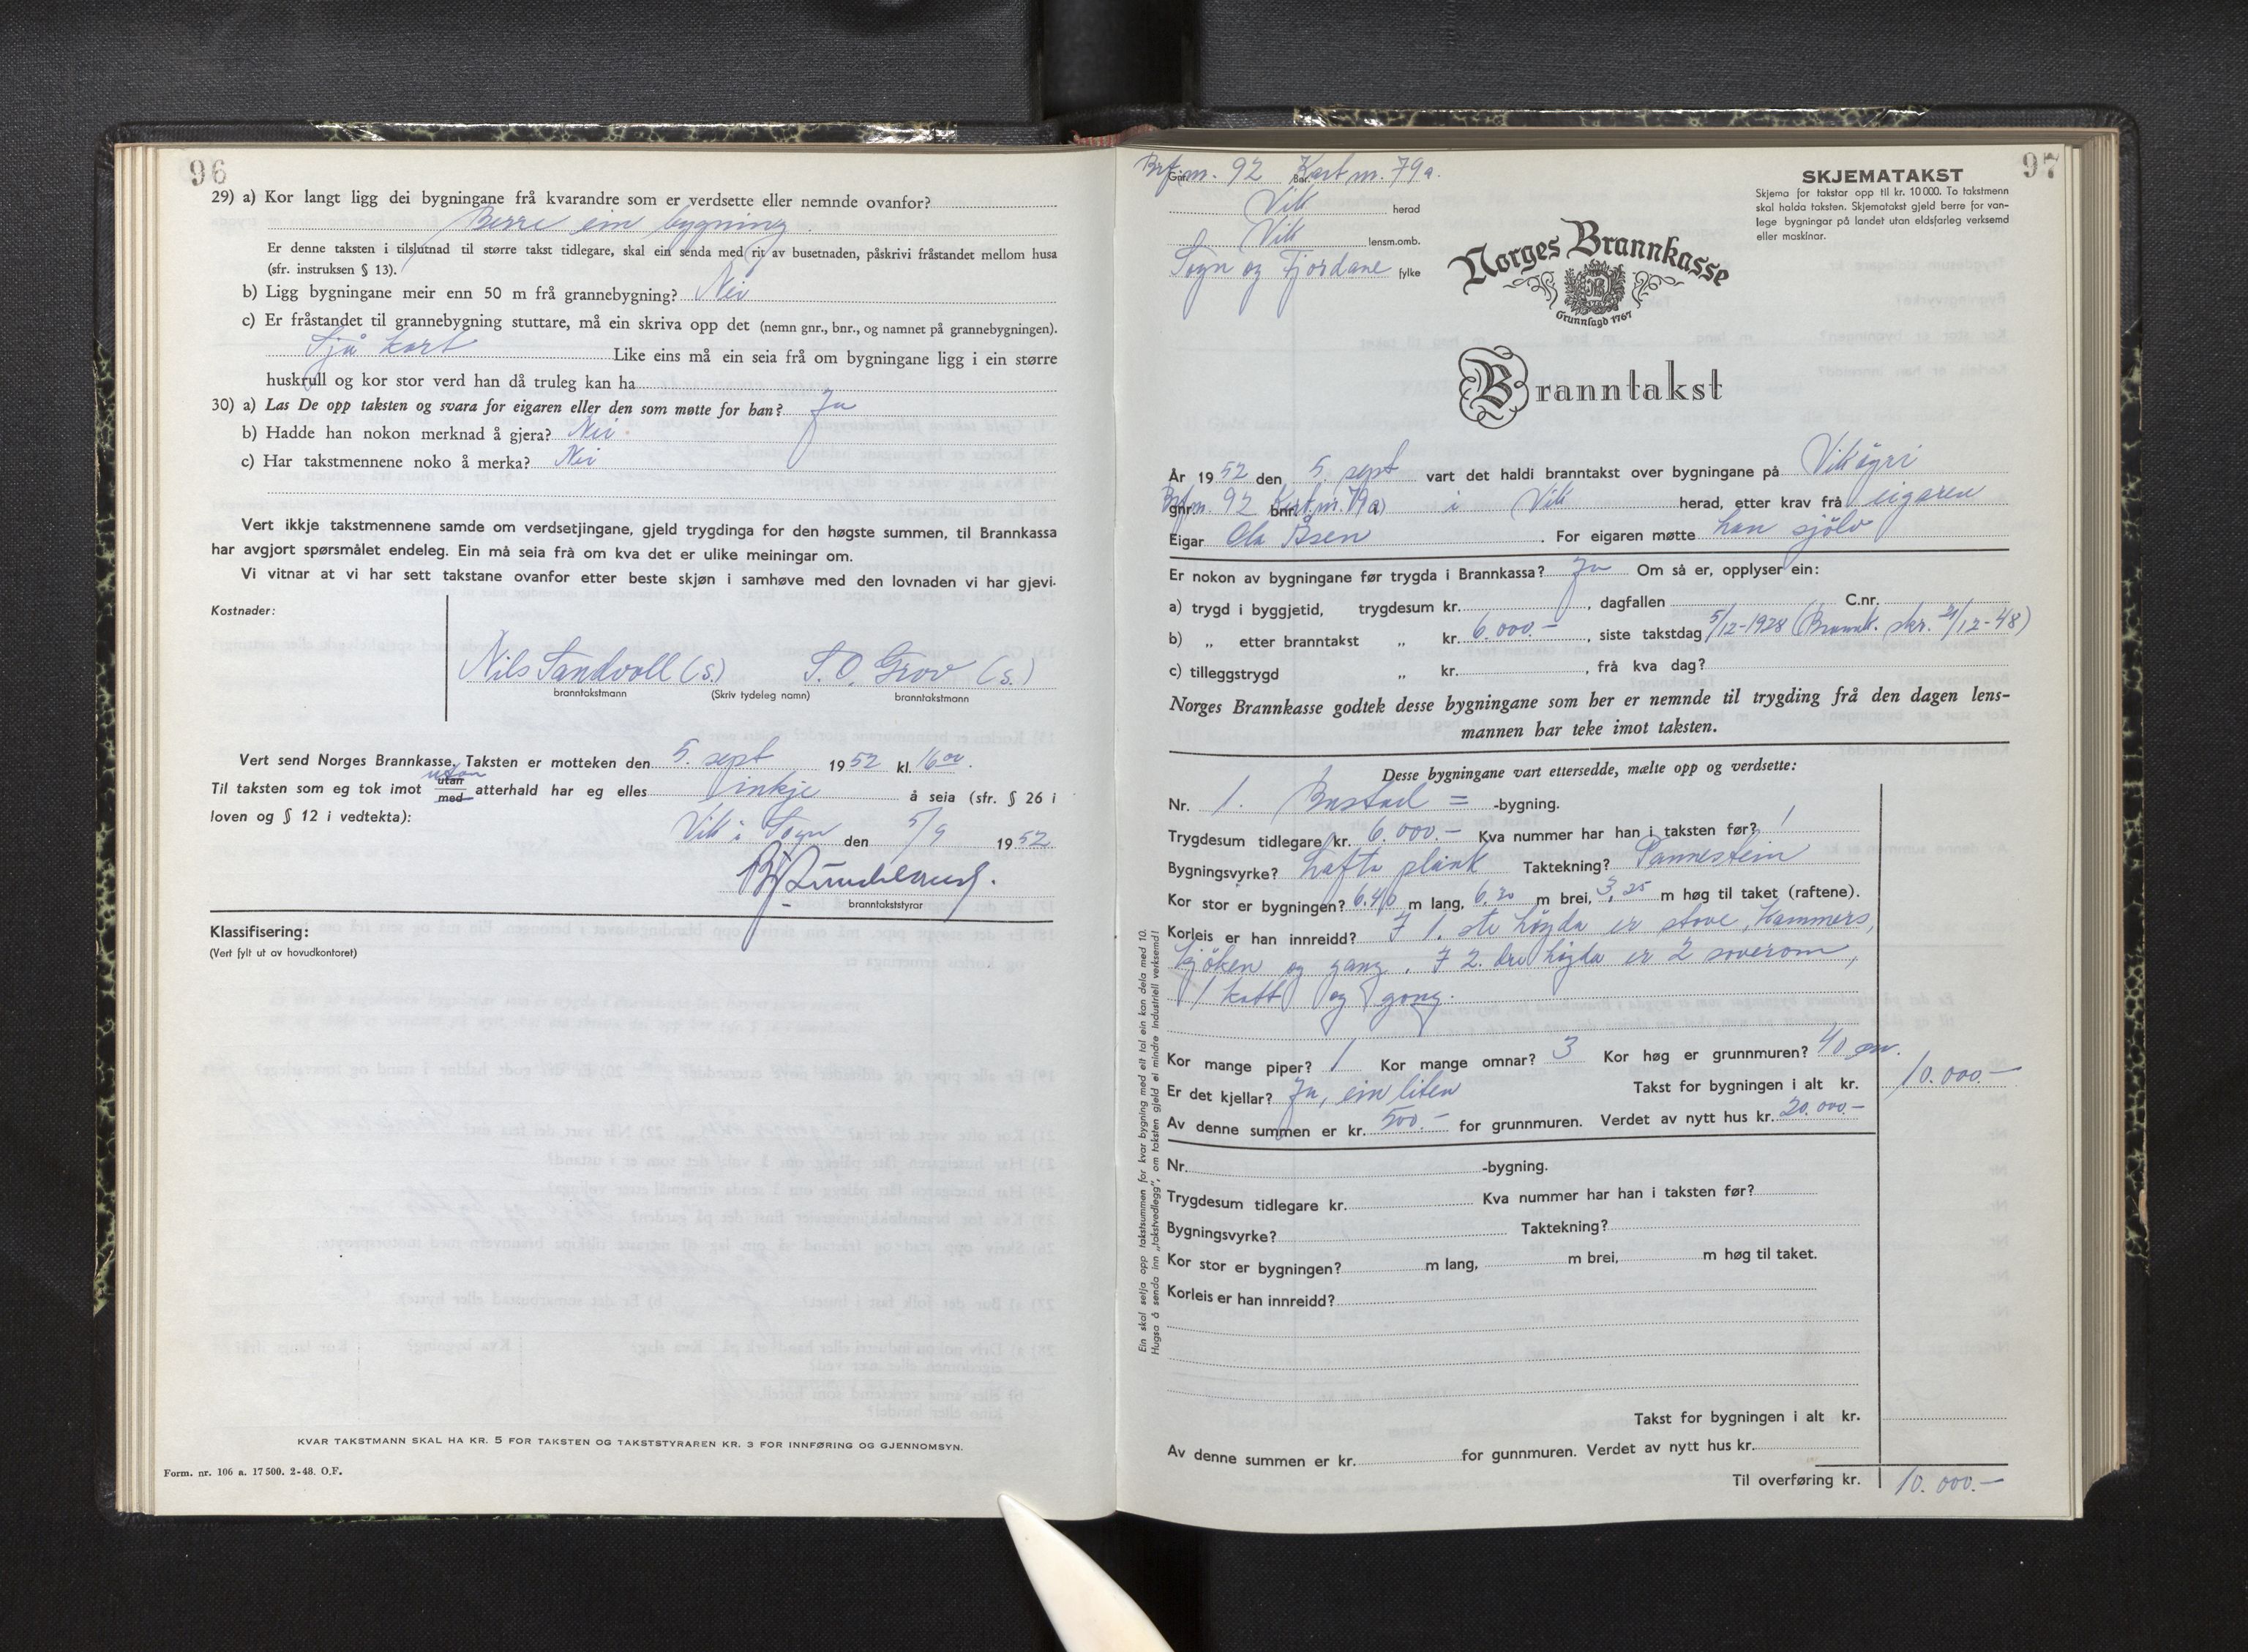 96
29) a) Kor langt ligg dei bygningane frå kvarandre som er verdsette eller nemnde ovanfor?
Berre ein bygning.
Er denne taksten i tilslutnad til større takst tidlegare, skal ein senda med rit av busetnaden, påskrivi fråstandet mellom husa
(sfr. instruksen § 13).
b) Ligg bygningane meir enn 50 m frå grannebygning? Nei
c) Er fråstandet til grannebygning stuttare, må ein skriva opp det (nemn gnr., bnr., og namnet på grannebygningen).
Sjå kart Like eins må ein seia frå om bygningane ligg i ein større
huskrull og kor stor verd han då truleg kan ha
30) a) Las De opp taksten og svara for eigaren eller den som møtte for han? Ja
b) Hadde han nokon merknad å gjera? Nei
c) Har takstmennene noko å merka? Nei
Vert ikkje takstmennene samde om verdsetjingane, gjeld trygdinga for den høgste summen, til Brannkassa
har avgjort spørsmålet endeleg. Ein må seia frå om kva det er ulike meiningar om.
Vi vitnar at vi har sett takstane ovanfor etter beste skjøn i samhøve med den lovnaden vi har gjevi.
Kostnader:
Nils Tandvoll (s.) S. O. Grov (s.)
branntakstmann (Skriv tydeleg namn) branntakstmann
Vert send Norges Brannkasse. Taksten er motteken den 5. sept 1952 kl. 16 00.
utan
Til taksten som eg tok imot utan med atterhald har eg elles inkje å seia (sfr. § 26 i
loven og § 12 i vedtekta):
Vik i Sogn den 5/9 1952
branntakststyrar
Klassifisering:
(Vert fylt ut av hovudkontoret)
KVAR TAKSTMANN SKAL HA KR. 5 FOR TAKSTEN OG TAKSTSTYRAREN KR. 3 FOR INNFØRING OG GJENNOMSYN.
Form. nr. 106 a. 17 500. 2-48. O.F.
97
Brf.nr. 92 Kart nr. 79a.
Gnr. Bnr.
Vik herad
Vik lensm.omb.
Sogn og Fjordane fylke
SKJEMATAKST
Skjema for takstar opp til kr. 10 000. To takstmenn
skal halda taksten. Skjematakst gjeld berre for van-
lege bygningar på landet utan eldsfarleg verksemd
eller maskinar.
Norges Brannkasse
Grunnlagd 1767
Branntakst
År 1952 den 5. sept vart det haldi branntakst over bygningane på Vikøyri
gnr. Brf.nr. 92 bnr. Kart.nr. 79a) i Vik herad, etter krav frå eigaren
Eigar Ola Åsen. For eigaren møtte han sjölv
Er nokon av bygningane før trygda i Brannkassa? Ja Om så er, opplyser ein:
a) trygd i byggjetid, trygdesum kr. , dagfallen C.nr.
b) „ etter branntakst „ kr. 6.000.- , siste takstdag 5/12-1928 (Brannk. skr. 21/12-48)
c) tilleggstrygd „ kr. , frå kva dag?
Norges Brannkasse godtek desse bygningane som her er nemnde til trygding frå den dagen lens-
mannen har teke imot taksten.
Desse bygningane vart ettersedde, mælte opp og verdsette:
Nr. 1. Bustad = -bygning.
Trygdesum tidlegare kr. 6.000.- Kva nummer har han i taksten før? 1
Bygningsvyrke? Lafta plank Taktekning? Pannestein
Kor stor er bygningen? 6.40 m lang, 6.20 m brei, 3,25 m høg til taket (raftene).
Korleis er han innreidd? I 1. ste högda er stove, kammers,
kjöken og gang. I 2. dre högda er 2 soverom,
1 kott og gong.
Kor mange piper? 1 Kor mange omnar? 3 Kor høg er grunnmuren? 40 cm.
Er det kjellar? Ja, ein liten Takst for bygningen i alt kr. 10.000.-
Av denne summen er kr. 500.- for grunnmuren. Verdet av nytt hus kr. 20.000.-
Nr. -bygning.
Trygdesum tidlegare kr. Kva nummer har han i taksten før?
Bygningsvyrke? Taktekning?
Kor stor er bygningen? m lang, m brei, m høg til taket.
Korleis er han innreidd?
Takst for bygningen i alt kr.
Av denne summen er kr. for gunnmuren. Verdet av nytt hus kr.
Til overføring kr. 10.000.-
Ein skal setja opp takstsummen for kvar bygning med eit tal ein kan dela med 10.
Hugsa å senda inn „takstvedlegg", om taksten gjeld ei mindre industriell verksemd!